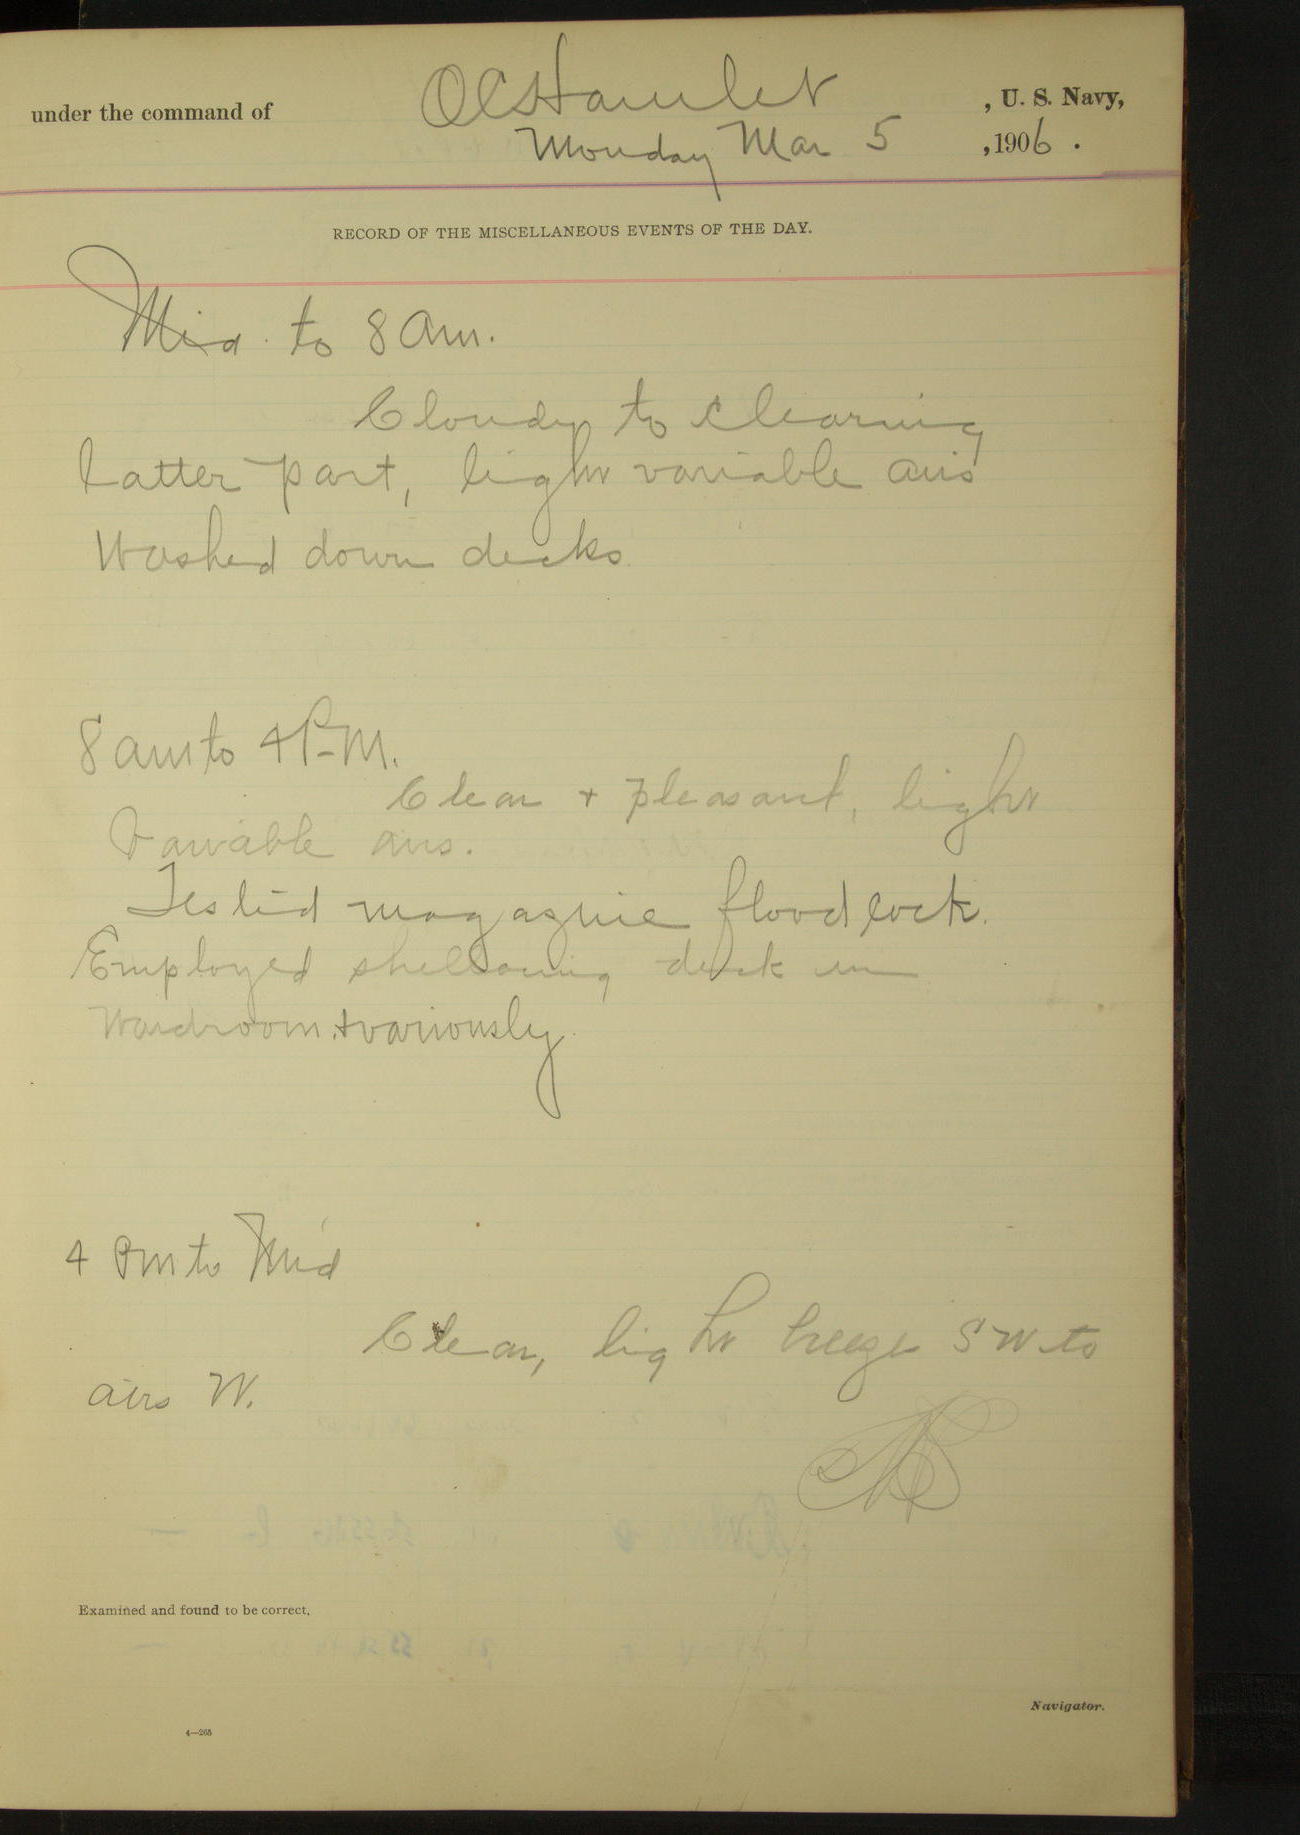 under the command of O C Hamlet , U. S. Navy,
Monday Mar 5 , 1906 .
RECORD OF THE MISCELLANEOUS EVENTS OF THE DAY.
Mid. to 8 am.
Cloudy to clearing
latter part, light variable airs
Washed down decks
8 am to 4 P.M.
Clear + pleasant, light
variable airs.
Tested magazine flood cock.
Employed shellacing deck in
Wardroom + variously.
4 Pm to Mid
Clear, light breeze SW to
airs W.
Examined and found to be correct,
Navigator.
4—265